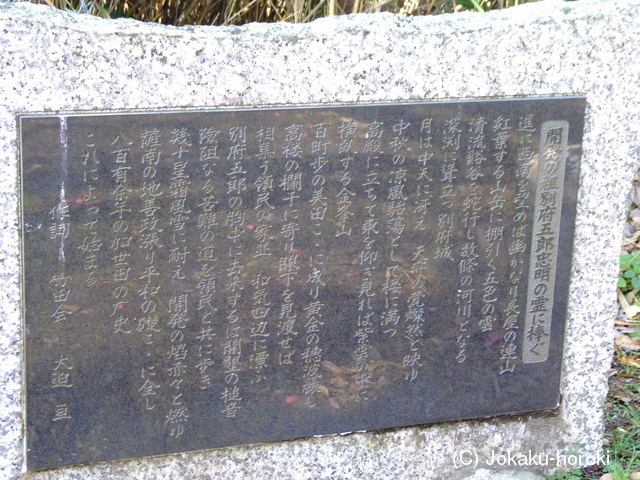 開発の祖別府五郎忠明の霊に捧ぐ
遥に西南を望めば幽かなり長屋の連山
紅葉する山岳に棚引く五色の雲
清流谿谷を蛇行し数條の河川となる
深渕に聳え立つ別府城
月は中天に冴え 天守の甍燦然と映ゆ
中秋の凉風飄湯として楼に満つ
高殿に立ちて東を仰ぎ見れば紫雲の中に
横臥する金峯山
百町歩の美田ここに成り黄金の穂波囁し
高楼の欄干に寄り眼下を見渡せば
相集う領民の家並 和気四辺に漂ふ
別府五郎の胸中に去来するは開墾の槌音
険阻なる苦難の道を領民と共に歩き
幾十星霜風雪に耐え 開発の焰赤々と燃ゆ
薩南の地善政張り平和の礎ここに全し
八百有余年の加世田の歴史
これによって始まる
作詞 竹田会 大迫 亘
(C) Jokaku-horoki